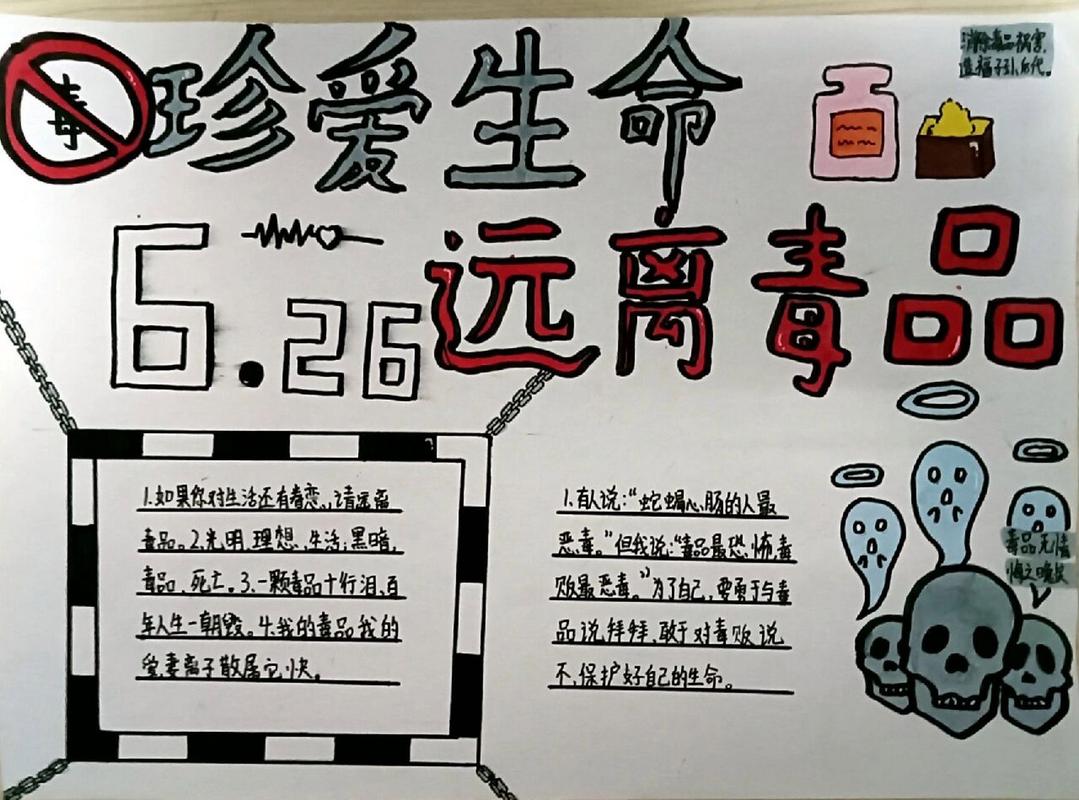 毒
珍爱生命
消除毒品祸害,
造福子孙后代。
6.26
远离毒品
1.如果你对生活还有眷恋,请远离
毒品。2.光明、理想、生活;黑暗、
毒品、死亡。3.一颗毒品十行泪,百
年人生一朝毁。4.我的毒品我的
爱,妻离子散属它快。
1.有人说:“蛇蝎心肠的人最
恶毒。”但我说:“毒品最恐怖,毒
贩最恶毒。”为了自己,要勇于与毒
品说拜拜,敢于对毒贩说
不,保护好自己的生命。
毒品无情
悔之晚矣